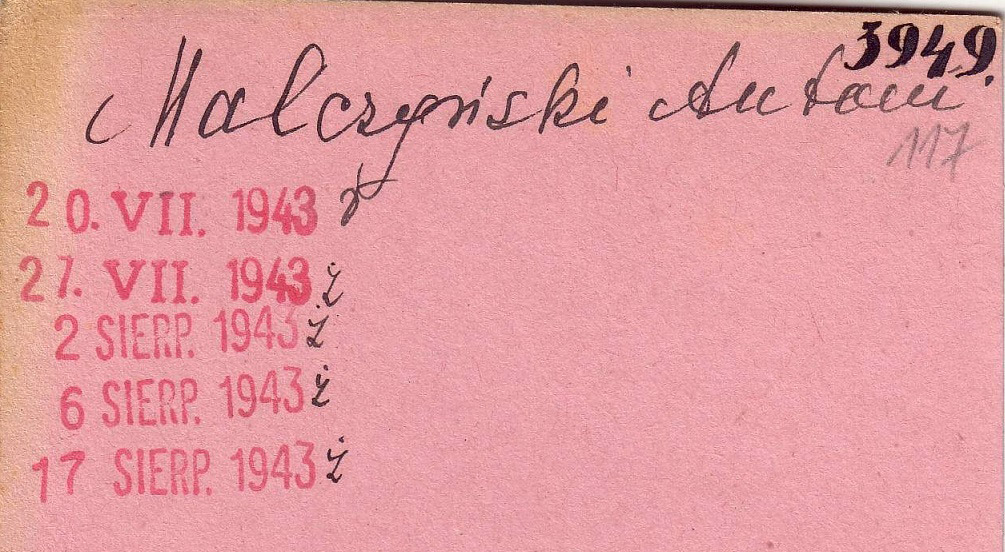 3949.
Malczyński Antoni
117
20. VII. 1943
27. VII. 1943 ż
2 SIERP. 1943 ż
6 SIERP. 1943 ż
17 SIERP. 1943 ż